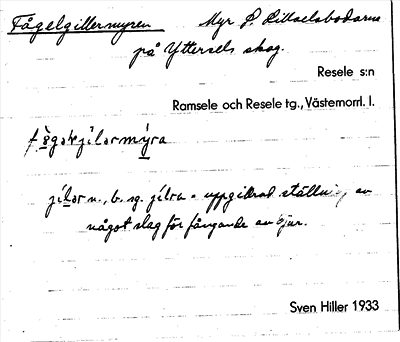 Fågelgillermyren Myr S Lillselsbodarna
på Yttersels skog.
Resele s:n
Ramsele och Resele tg., Västernorrl. l.
jílər n., b. sg. jílra = uppgillrad ställning av
något slag för fångande av djur.
Sven Hiller 1933